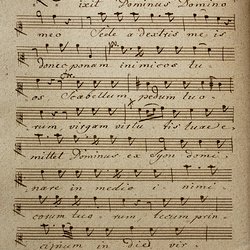 ixit Dominus Domino
meo Sede a dextris me is
donec ponam inimicos tu
os Scabellum pedum tuo
rum, virgam virtu tis tuae e
mittet Dominus ex Syon domi
nare in medio inimi
corum tuo rum, tecum prin
cipium in die vir